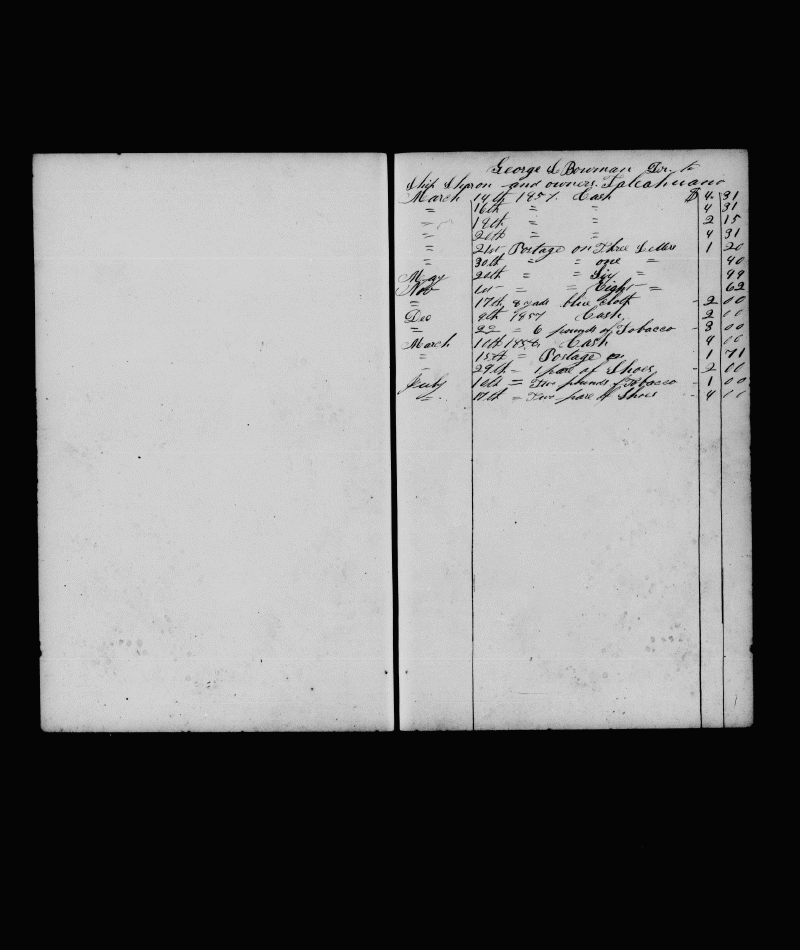 George L Bowman Dr. to
Ship Sharon and owners. Talcahuano
March 14th 1857. Cash $ 4. 31
" 16th " " 4 31
" 19th " " 2 15
" 20th " " 4 31
" 21st Postage on Three Letters 1 20
" 30th " " one " 40
May 20th " " Six " 99
Nov 1st " " Eight " 62
" 17th 8 yads blue cloth - 2 00
Dec 9th 1857 Cash, 2 00
" 22 " 6 pounds of Tobacco - 3 00
March 10th 1858 Cash 4 00
" 15th " Postage on 1 71
29th - 1 pare of Shoes - 2 00
July 10th = Two pounds of Tobacco - 1 00
" 17th = Two pare of Shoes - 4 00